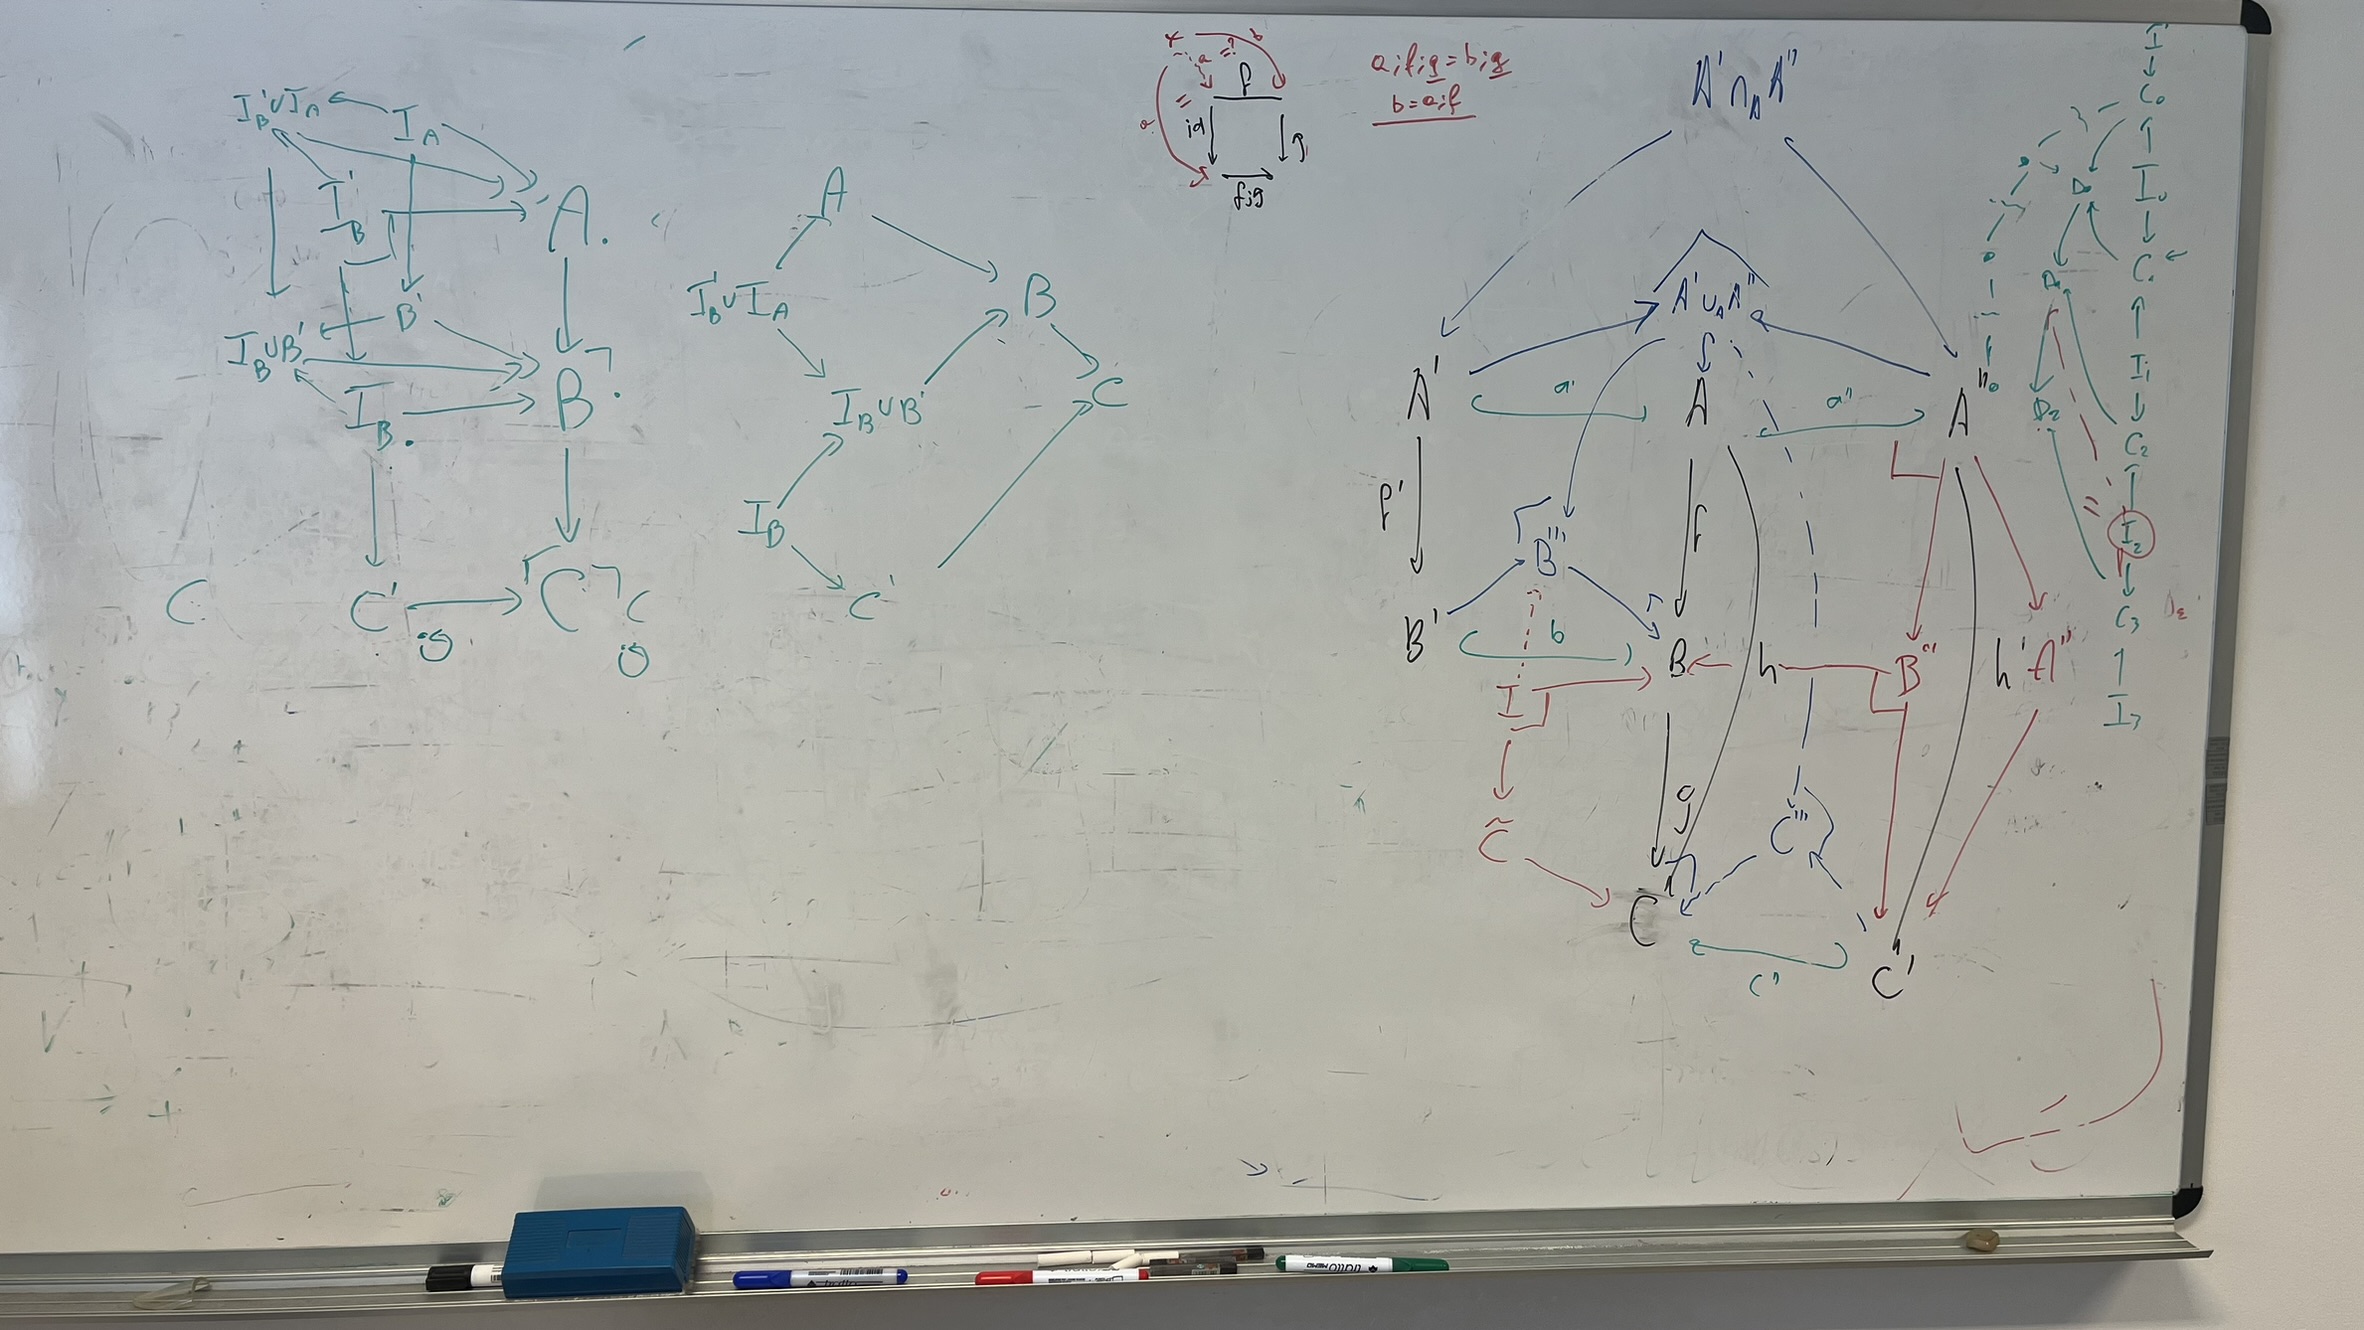 I'_B ∪ I_A
I_A
I'_B
A.
B'
I_B ∪ B'
B.
I_B.
C
C'
C
A
I'_B ∪ I_A
B
I_B ∪ B'
C
I_B
C'
b
a =?
f
a
=
id
g
f;g
a;f;g = b;g
b = a;f
A' ∩_A A''
A' ∪_A A''
A'
a'
A
a''
A''
f'
f
B'''
B'
b
B
h
B''
h'
A''
I
C̃
g
C'''
C
c''
C'
C_0
D_0
I_0
I_1
D_2
C_2
=
I_2
C_3
I_3